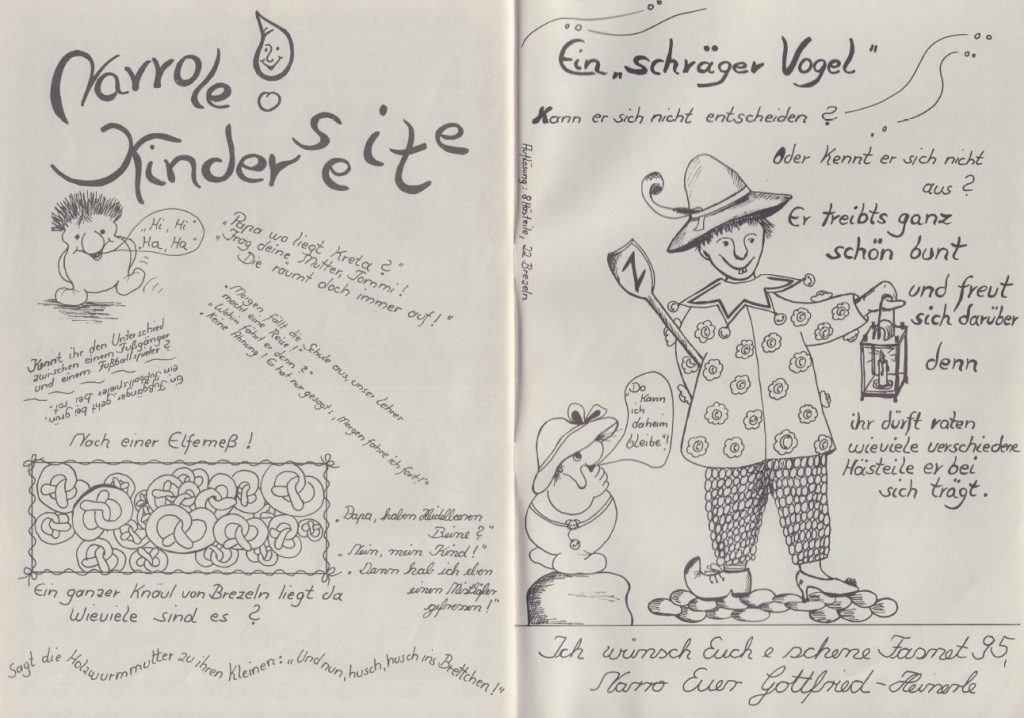 Narrole!
Kinderseite
"Hi, Hi"
"Ha, Ha"
"Papa wo liegt Kreta?"
"Frag deine Mutter, Tommi!
Die räumt doch immer auf!"
"Morgen fällt die Schule aus, unser Lehrer
macht eine Reise!"
"Wohin fährt er denn?"
"Keine Ahnung! Er hat nur gesagt: „Morgen fahre ich fort!"
Kennt ihr den Unterschied
zwischen einem Fußgänger
und einem Fußballspieler?
Ein Fußgänger geht bei grün,
ein Fußballspieler bei rot.
Noch einer Elfemeß!
Ein ganzer Knäul von Brezeln liegt da
Wieviele sind es?
"Papa, haben Heidelbeeren
Beine?"
"Nein, mein Kind!"
"Dann hab ich eben
einen Mistkäfer
gefressen!"
Sagt die Holzwurmmutter zu ihren Kleinen: „Und nun, husch, husch ins Brettchen!"
Auflösung: 8 Hästeile, 22 Brezeln
Ein „schräger Vogel"
Kann er sich nicht entscheiden?
Oder kennt er sich nicht
aus?
Er treibts ganz
schön bunt
und freut
sich darüber
denn
ihr dürft raten
wieviele verschiedene
Hästeile er bei
sich trägt.
N
"Do
kann
ich
daheim
bleibe"!
Ich wünsch Euch e schene Fasnet 95,
Narro Euer Gottfried-Heinerle